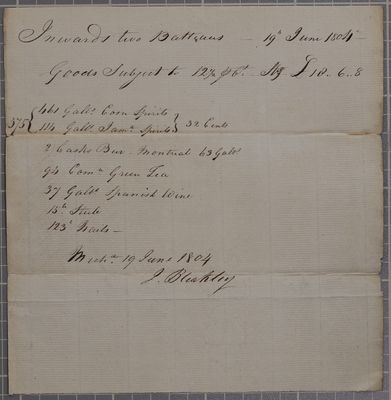 Inwards two Batteaus — 19th June 1804
Goods Subject to 12½ pCt. — Stg £ 18..6..8
575 { 461 Galls Corn Spirits
114 Galls Jama. Spirits } 32 Cents
2 Casks Beer - Montreal 63 Galls
94 Comn Green Tea
37 Galls Spanish Wine
15lb
123lb Nails —
Michna 19 June 1804
J. Bleakley